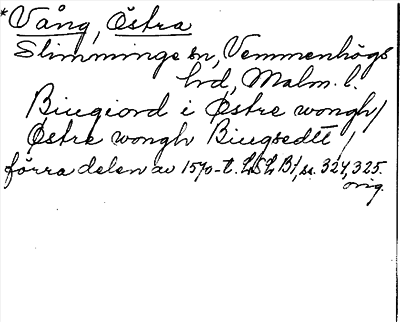 *Vång, Östra
Slimminge sn, Vemmenhögs
hrd, Malm. l.
Biugiord i Østre wongh/
Østre wongh Biugsedtt/
förra delen av 1570-t. LSL B1, s. 324, 325.
orig.